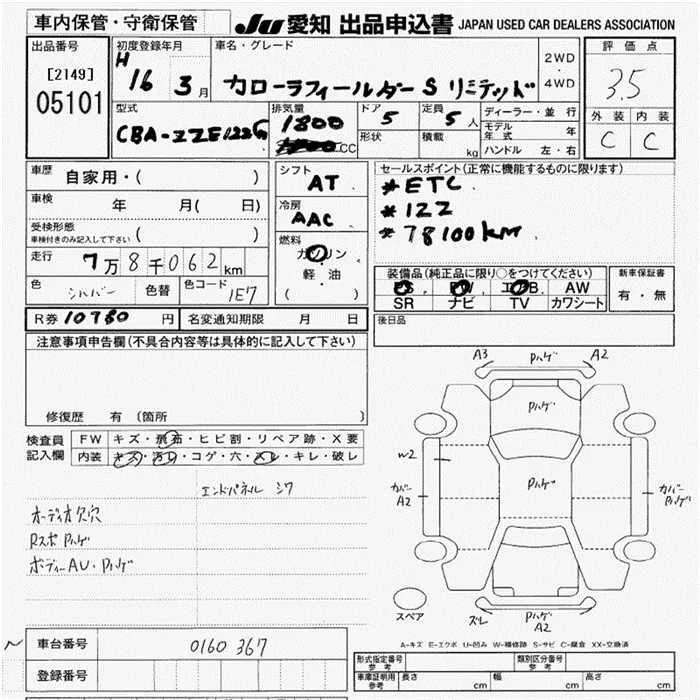 車内保管・守衛保管
JU 愛知 出品申込書 JAPAN USED CAR DEALERS ASSOCIATION
出品番号
[2149]
05101
初度登録年月
H16 3月
車名・グレード
カローラフィールダーS リミテッド
2WD
・
4WD
評価点
3.5
外装 内装
C C
型式
CBA-ZZE122G
排気量
1800
CC
ドア
5
形状
定員
5人
積載
kg
ディーラー・並行
モデル年式 年
ハンドル 左・右
車歴
自家用・( )
車検
年 月( 日)
受検形態
車検付きのみ記入して下さい ( )
走行
7万8千062km
色
シルバー
色替
色コード
1E7
シフト
AT
冷房
AAC
燃料
ガソリン
・
軽・油
( )
セールスポイント(正常に機能するものに限ります)
*ETC
*1ZZ
*78100km
装備品(純正品に限り○をつけてください)
PS PW エアB AW
SR ナビ TV カワシート
新車保証書
有・無
R券 10780 円
名変通知期限 月 日
後日品
注意事項申告欄(不具合内容等は具体的に記入して下さい)
修復歴 有 〔箇所 〕
検査員記入欄
FW キズ・飛石・ヒビ割・リペア跡・X要
内装 キズ・汚レ・コゲ・穴・スレ・キレ・破レ
エンドパネル シワ
オーディオ欠穴
Rスポ Pハゲ
ボディーAU・Pハゲ
A3 Pハゲ A2
Pハゲ
W2
Pハゲ
カバー
A2
カバー
Pハゲ
スペア
ズレ
Pハゲ
A2
A-キズ E-エクボ U-凹み W-補修跡 S-サビ C-腐食 XX-交換済
車台番号 0160367
登録番号
形式指定番号 参考
類別区分番号 参考
車庫証明用 参考 長さ cm 幅 cm 高さ cm